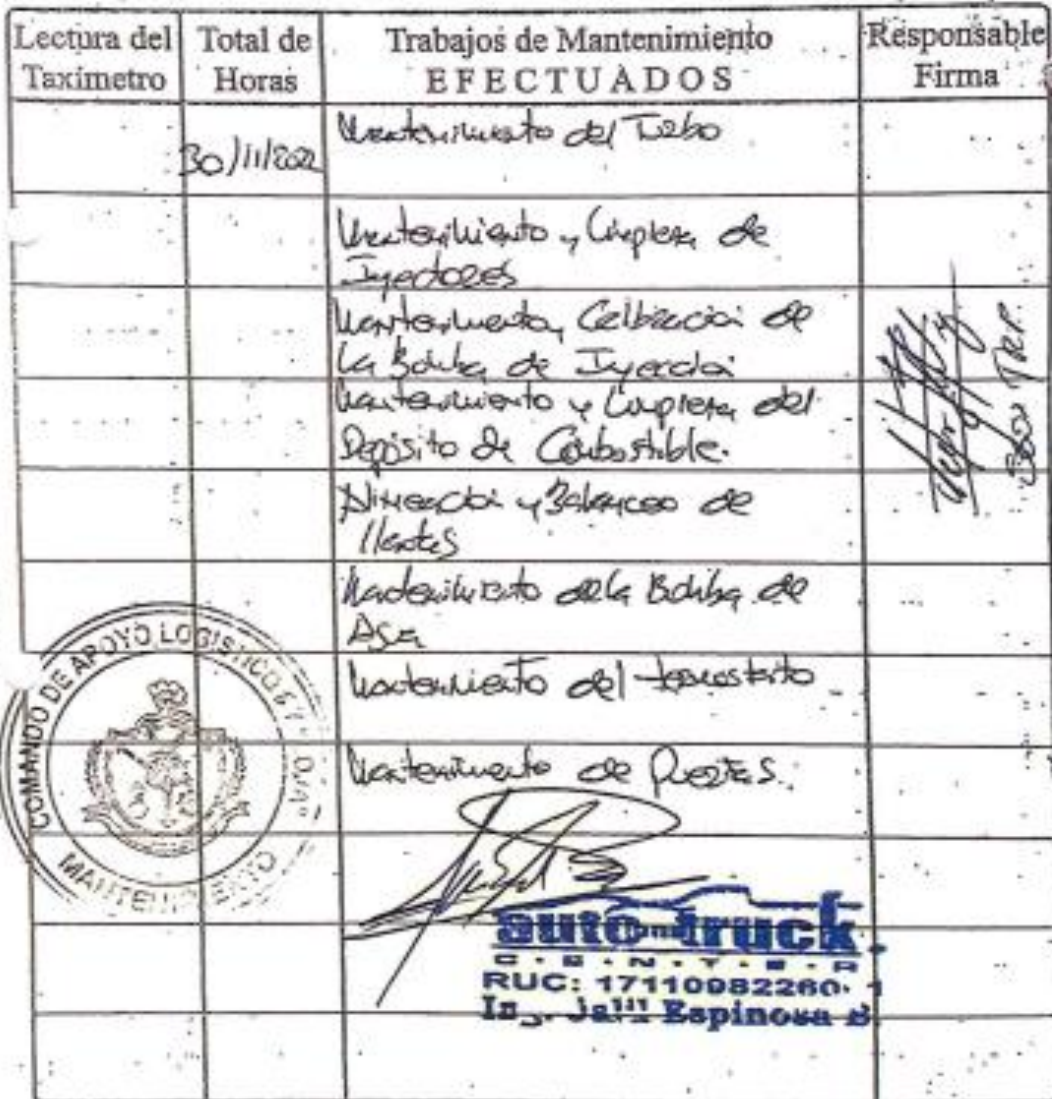 Lectura del Taxímetro
Total de Horas
Trabajos de Mantenimiento EFECTUADOS
Responsable Firma
30/11/2022
Mantenimiento del Turbo
Mantenimiento y Limpieza de
Inyectores
Mantenimiento, Calibración de
la Bomba de Inyección
Mantenimiento y Limpieza del
Depósito de Combustible.
Alineación y Balanceo de
llantas
Mantenimiento de la Bomba de
Agua
Mantenimiento del termostato
Mantenimiento de Puertas.
COMANDO DE APOYO LOGISTICO
MANTENIMIENTO
auto truck
C·E·N·T·E·R
RUC: 17110982260
Espinosa